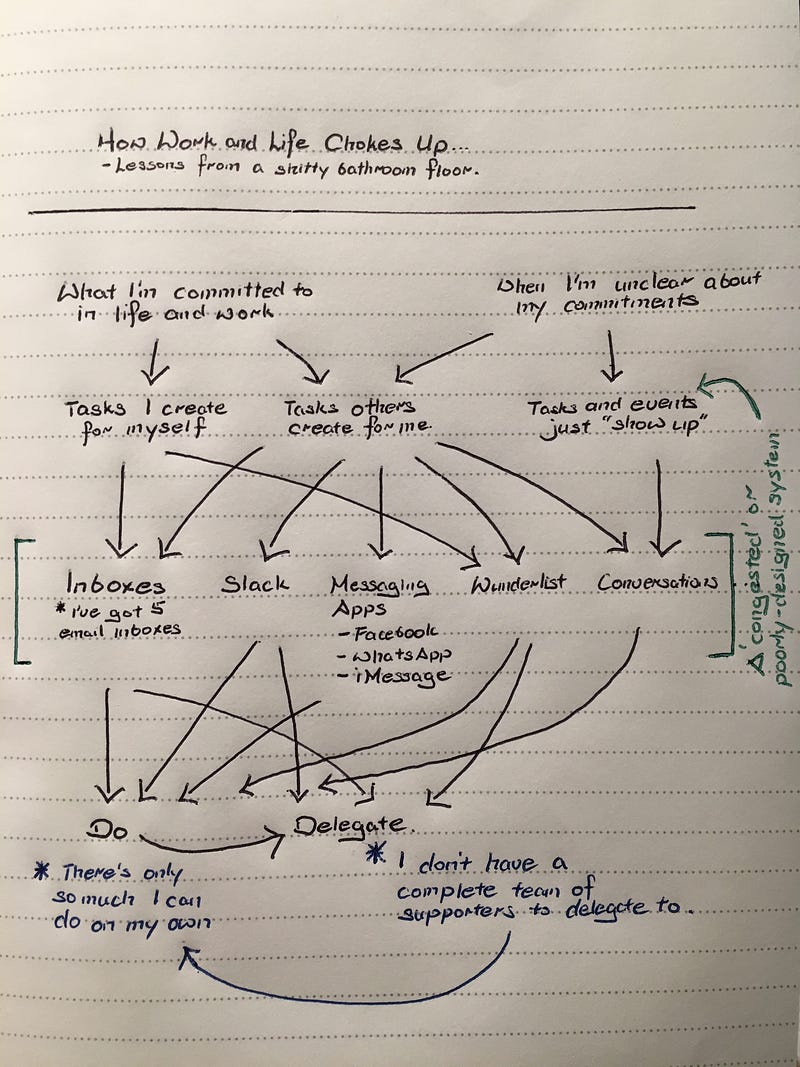 How Work and Life Chokes Up...
- Lessons from a shitty bathroom floor.
What I'm committed to
in life and work
When I'm unclear about
my commitments
Tasks I create
for myself
Tasks others
create for me
Tasks and events
just "show up"
Inboxes
* I've got 5
email inboxes
Slack
Messaging
Apps
- Facebook
- WhatsApp
- iMessage
Wunderlist
Conversations
A 'congested' or
poorly-designed system
Do
Delegate.
* There's only
so much I can
do on my own
* I don't have a
complete team of
supporters to delegate to.